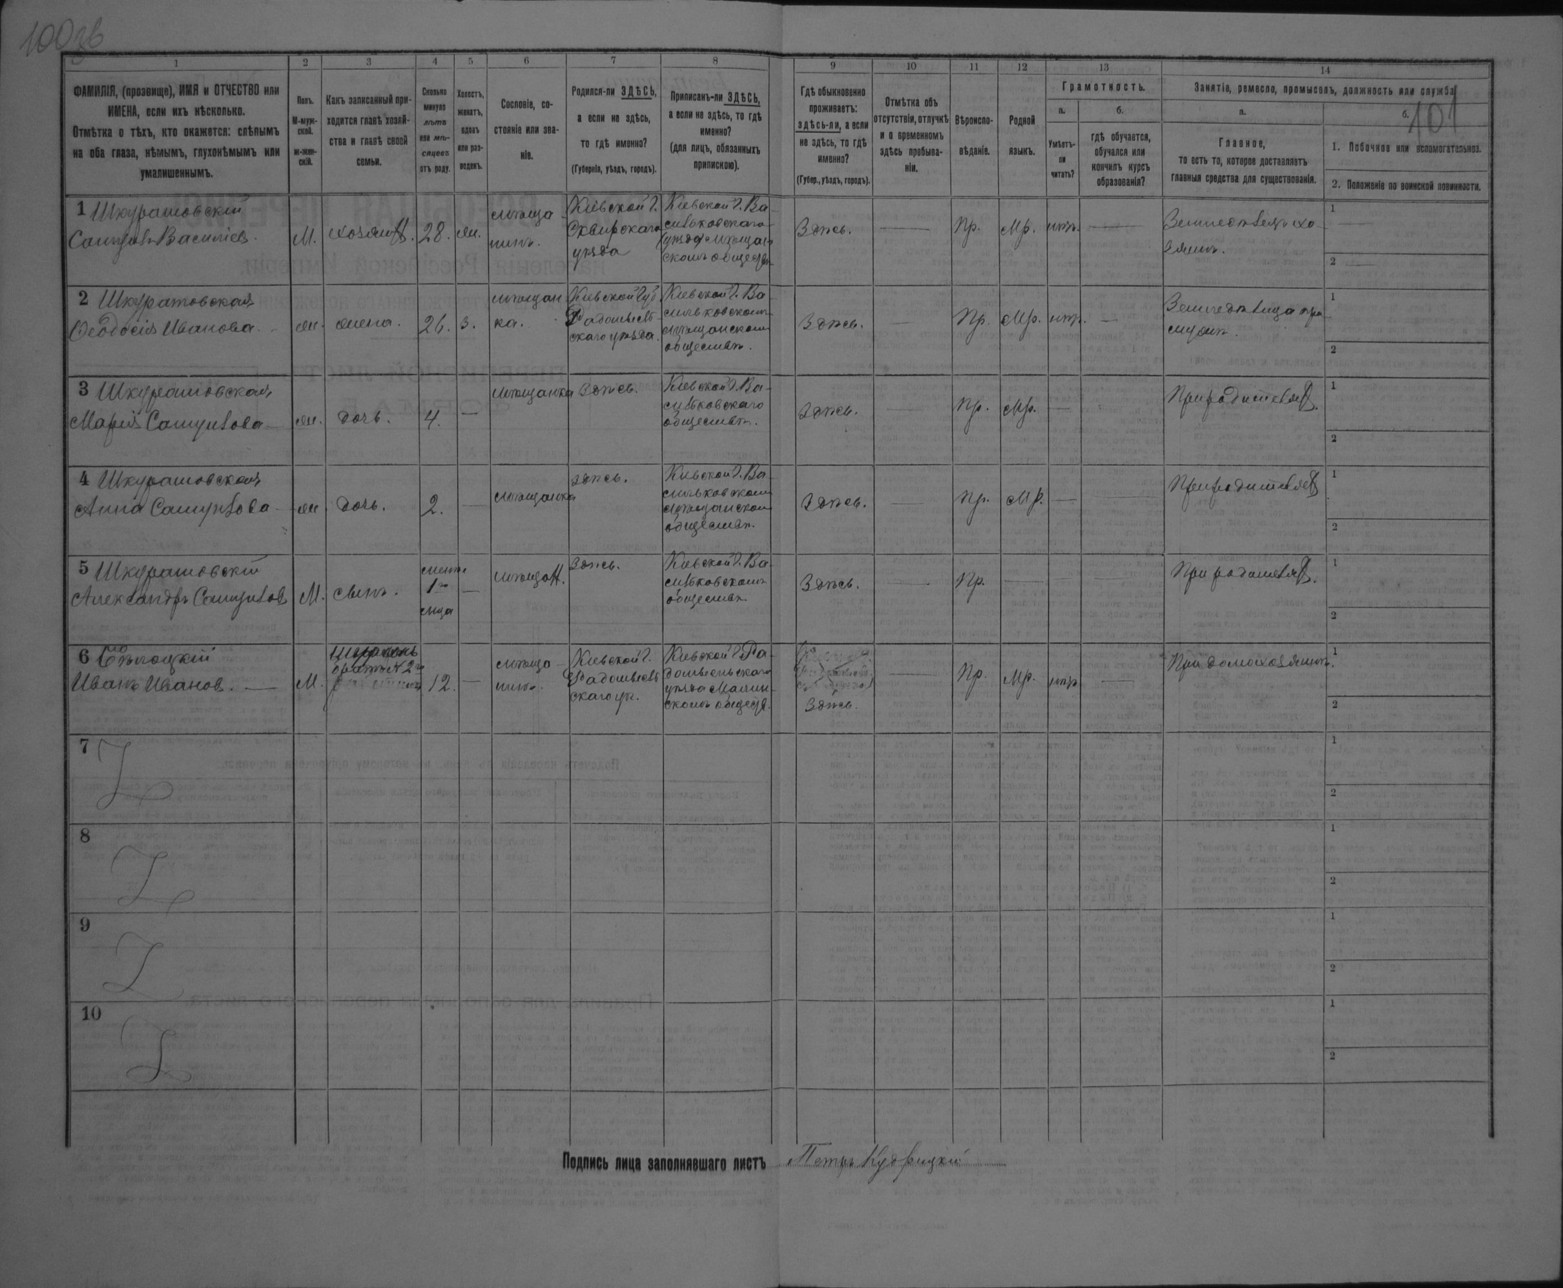 100об
101
1 2 3 4 5 6 7 8 9 10 11 12 13 14
ФАМИЛІЯ, (прозвище), ИМЯ и ОТЧЕСТВО или
ИМЕНА, если ихъ нѣсколько.
Отмѣтка о тѣхъ, кто окажется: слѣпымъ
на оба глаза, нѣмымъ, глухонѣмымъ или
умалишеннымъ.
Полъ.
М-муж-
ской.
ж-жен-
скій.
Какъ записанный при-
ходится главѣ хозяй-
ства и главѣ своей
семьи.
Сколько
минуло
лѣтъ
или мѣ-
сяцевъ
отъ роду.
Холостъ,
женатъ,
вдовъ
или раз-
веденъ.
Сословіе, со-
стояніе или зва-
ніе.
Родился-ли ЗДѢСЬ,
а если не здѣсь,
то гдѣ именно?
(Губернія, уѣздъ, городъ).
Приписанъ-ли ЗДѢСЬ,
а если не здѣсь, то гдѣ
именно?
(для лицъ, обязанныхъ
припискою).
Гдѣ обыкновенно
проживаетъ:
здѣсь-ли, а если
не здѣсь, то гдѣ
именно?
(Губер., уѣздъ, городъ).
Отмѣтка объ
отсутствіи, отлучкѣ
и о временномъ
здѣсь пребыва-
ніи.
Вѣроиспо-
вѣданіе.
Родной
языкъ.
Грамотность.
а.
Умѣетъ-
ли
читать?
б.
гдѣ обучается,
обучался или
кончилъ курсъ
образованія?
Занятія, ремесло, промыселъ, должность или служба.
а.
Главное,
то есть то, которое доставляетъ
главныя средства для существованія.
б.
1. Побочное или вспомогательное.
2. Положеніе по воинской повинности.
1 Шкуратовскій
Самуилъ Васильев.
М.
хозяинъ.
28.
жен.
мѣща
нинъ.
Кіевской Г.
Сквирского
уѣзда
Кіевской Г. Ва
сильковскаго
уѣзда мѣщан
скомъ обществ.
Здѣсь.
Пр.
Мр.
нѣтъ
Земледѣлецъ хо
зяинъ.
1
2
2 Шкуратовская
Ѳеодосія Иванова
жен.
жена.
26.
з.
мѣщан
ка.
Кіевской Губ
Радомысль
скаго уѣзда.
Кіевской Г. Ва
сильковскомъ
мѣщанскомъ
обществѣ.
Здѣсь.
Пр.
Мр.
нѣтъ.
Земледѣлица при
мужѣ.
1
2
3 Шкуратовская
Марія Самуилова
жен.
дочь.
4.
мѣщанка
Здѣсь.
Кіевской Г. Ва
сильковскаго
обществѣ.
Здѣсь.
Пр.
Мр.
При родителяхъ.
1
2
4 Шкуратовская
Анна Самуилова
жен.
дочь.
2.
мѣщанка
здѣсь.
Кіевской Г. Ва
сильковскомъ
мѣщанскомъ
обществѣ.
Здѣсь.
Пр.
Мр.
При родителяхъ
1
2
5 Шкуратовскій
Александръ Самуилов
М.
сынъ.
1
мѣщан.
Здѣсь.
Кіевской Г. Ва
сильковскомъ
обществѣ
Здѣсь.
Пр.
При родителяхъ.
1
2
6
Иванъ Иванов.
М.
12.
мѣща
нинъ.
Кіевской Г.
Радомысль
скаго уѣ.
Кіевской Г. Ра
домысльскаго
уѣзда Малин
скомъ обществ.
Здѣсь.
Пр.
Мр.
нѣтъ
При домохозяинѣ.
1
2
7
1
2
8
1
2
9
1
2
10
1
2
Подпись лица заполнявшаго листъ Петръ Кудрицкій